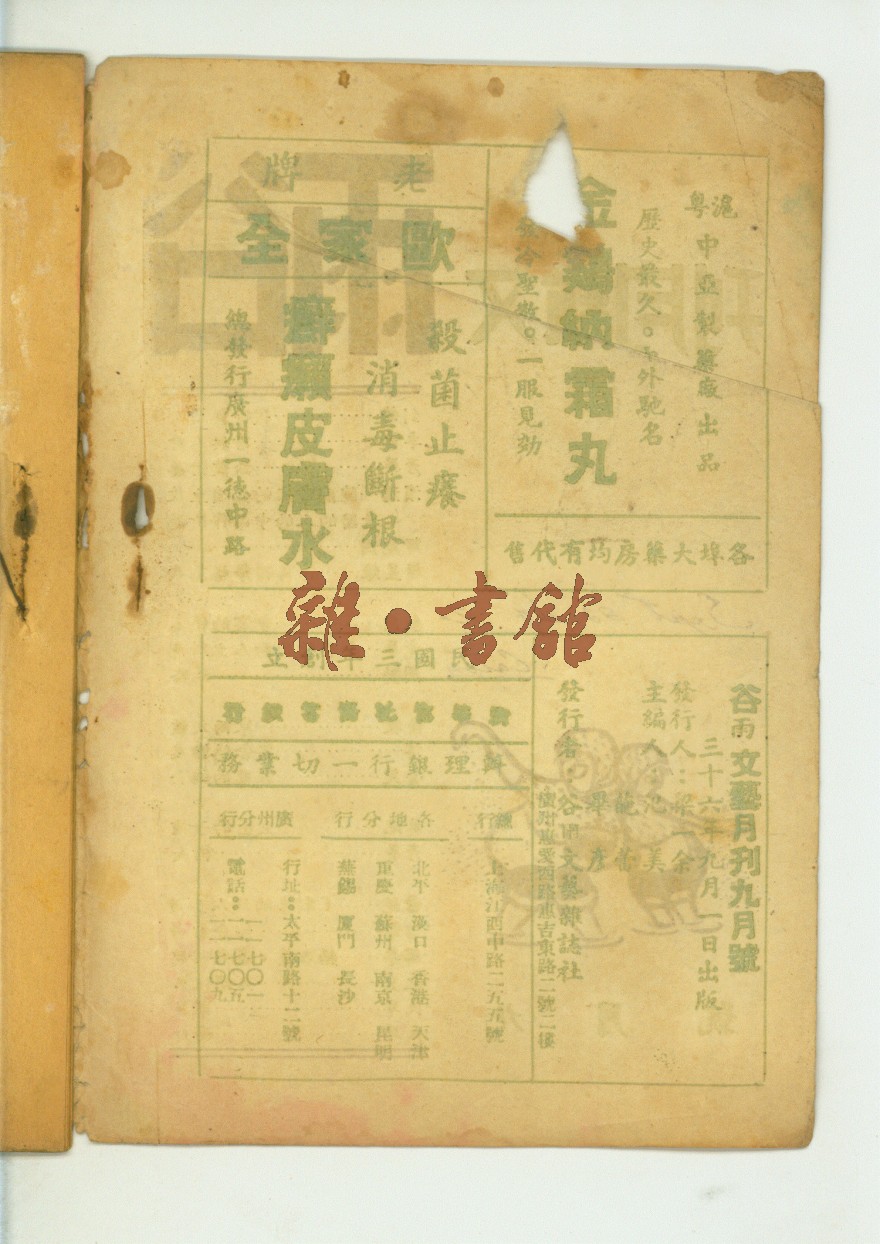 滬粵
中亞製藥廠出品
歷史最久。中外馳名
金鷄納霜丸
聖散。一服見効
各埠大藥房均有代售
老牌
歐家全
殺菌止癢
消毒斷根
癬癩皮膚水
總發行廣州一德中路
雜·書館
谷雨文藝月刊九月號
三十六年九月一日出版
發行人：梁一余
主編人：范美
龍蕾
畢彥
發行者：谷雨文藝雜誌社
廣州惠愛西路重吉東路二號二樓
民國三年創立
辦理銀行一切業務
總行
上海江西中路二五五號
各地分行
北平 漢口 香港 天津
重慶 蘇州 南京 昆明
無錫 廈門 長沙
廣州分行
行址：太平南路十二號
電話：一一七〇一
一一七〇五
一一七〇九